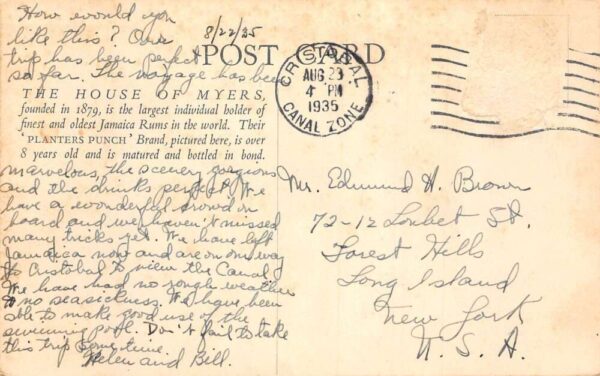 How would you
8/22/35
like this? Our
trip has been perfect
so far. The voyage has been
POST CARD
CRISTOBAL
AUG 23
4 PM
1935
CANAL ZONE
THE HOUSE OF MYERS,
founded in 1879, is the largest individual holder of
finest and oldest Jamaica Rums in the world. Their
'PLANTERS PUNCH' Brand, pictured here, is over
8 years old and is matured and bottled in bond.
marvelous, the scenery gorgeous
and the drinks perfect. We
have a wonderful crowd on
board and we haven't missed
many tricks yet. We have left
Jamaica now and are on our way
to Cristobal to view the Canal.
We have had no rough weather
& no seasickness. We have been
able to make good use of the
swimming pool. Don't fail to take
this trip some time.
Helen and Bill.
Mr. Edmund H. Brown
72-12 Loubet St.
Forest Hills
Long Island
New York
U. S. A.